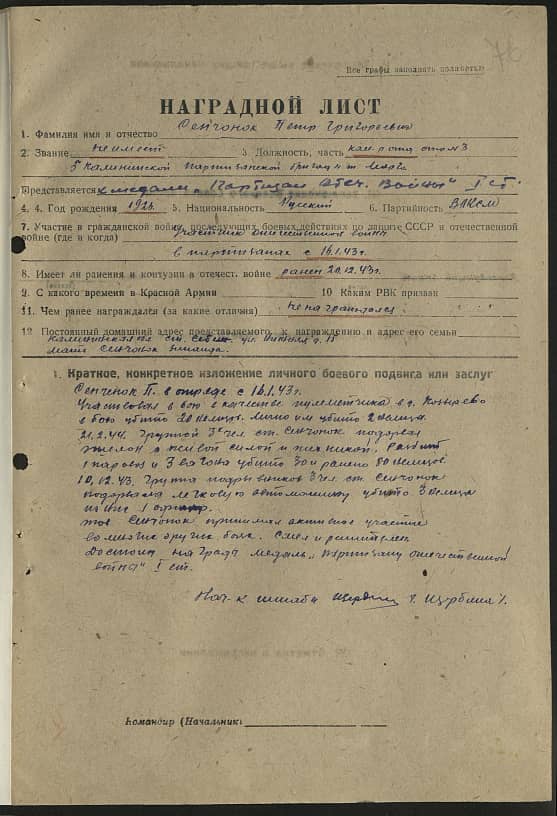 76
Все графы заполнять полностью
НАГРАДНОЙ ЛИСТ
1. Фамилия имя и отчество Сенчонок Петр Григорьевич
2. Звание не имеет 3. Должность, часть ком. рота отряд 3
5 Калининской Партизанской бригады
Представляется к медали „Партизан Отеч. Войны" I ст.
4. 4. Год рождения 1926 5. Национальность Русский 6. Партийность ВЛКСМ
7. Участие в гражданской войне, последующих боевых действиях по защите СССР и отечественной
войне (где и когда) участник отечественной войны
в партизанах с 16.1.43г
8. Имеет ли ранения и контузии в отечест. войне ранен 20.12.43г.
9. С какого времени в Красной Армии 10 Каким РВК призван
11. Чем ранее награждался (за какие отличия) не награждался
12 Постоянный домашний адрес представляемого к награждению и адрес его семьи
Калининская ст. Себеж ул. д. 15
мать Сенчонок
1. Краткое, конкретное изложение личного боевого подвига или заслуг
Сенченок П. в отряде с 16.1.43г.
Участвовал в бою в качестве пулеметчика в д.
в бою убито 20 немцев. Лично им убито 2 немца.
21.2.44. Группой 3 чел ст. Сенчонок подорвал
эшелон с живой силой и техникой. Разбит
1 паровоз и 3 вагона убито 30 и ранено 80 немцев.
10.12.43. Группа подрывников 3 чел. ст. Сенчонок
подорвала легковую автомашину убито 3 немца
из них 1 офицер.
тов Сенчонок принимал активное участие
во многих других боях. Смел и решителен
Достоин награды медаль „партизану отечественной
войны" I ст.
Нач-к штаба /. Щербина /.
Командир (Начальник)